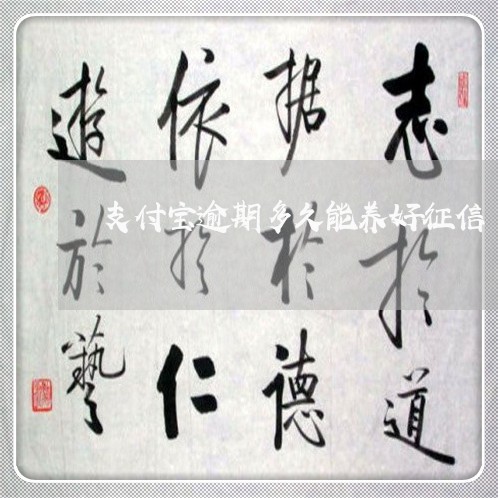 志於道
据於德
依於仁
遊於藝
支付宝逾期多久能养好征信